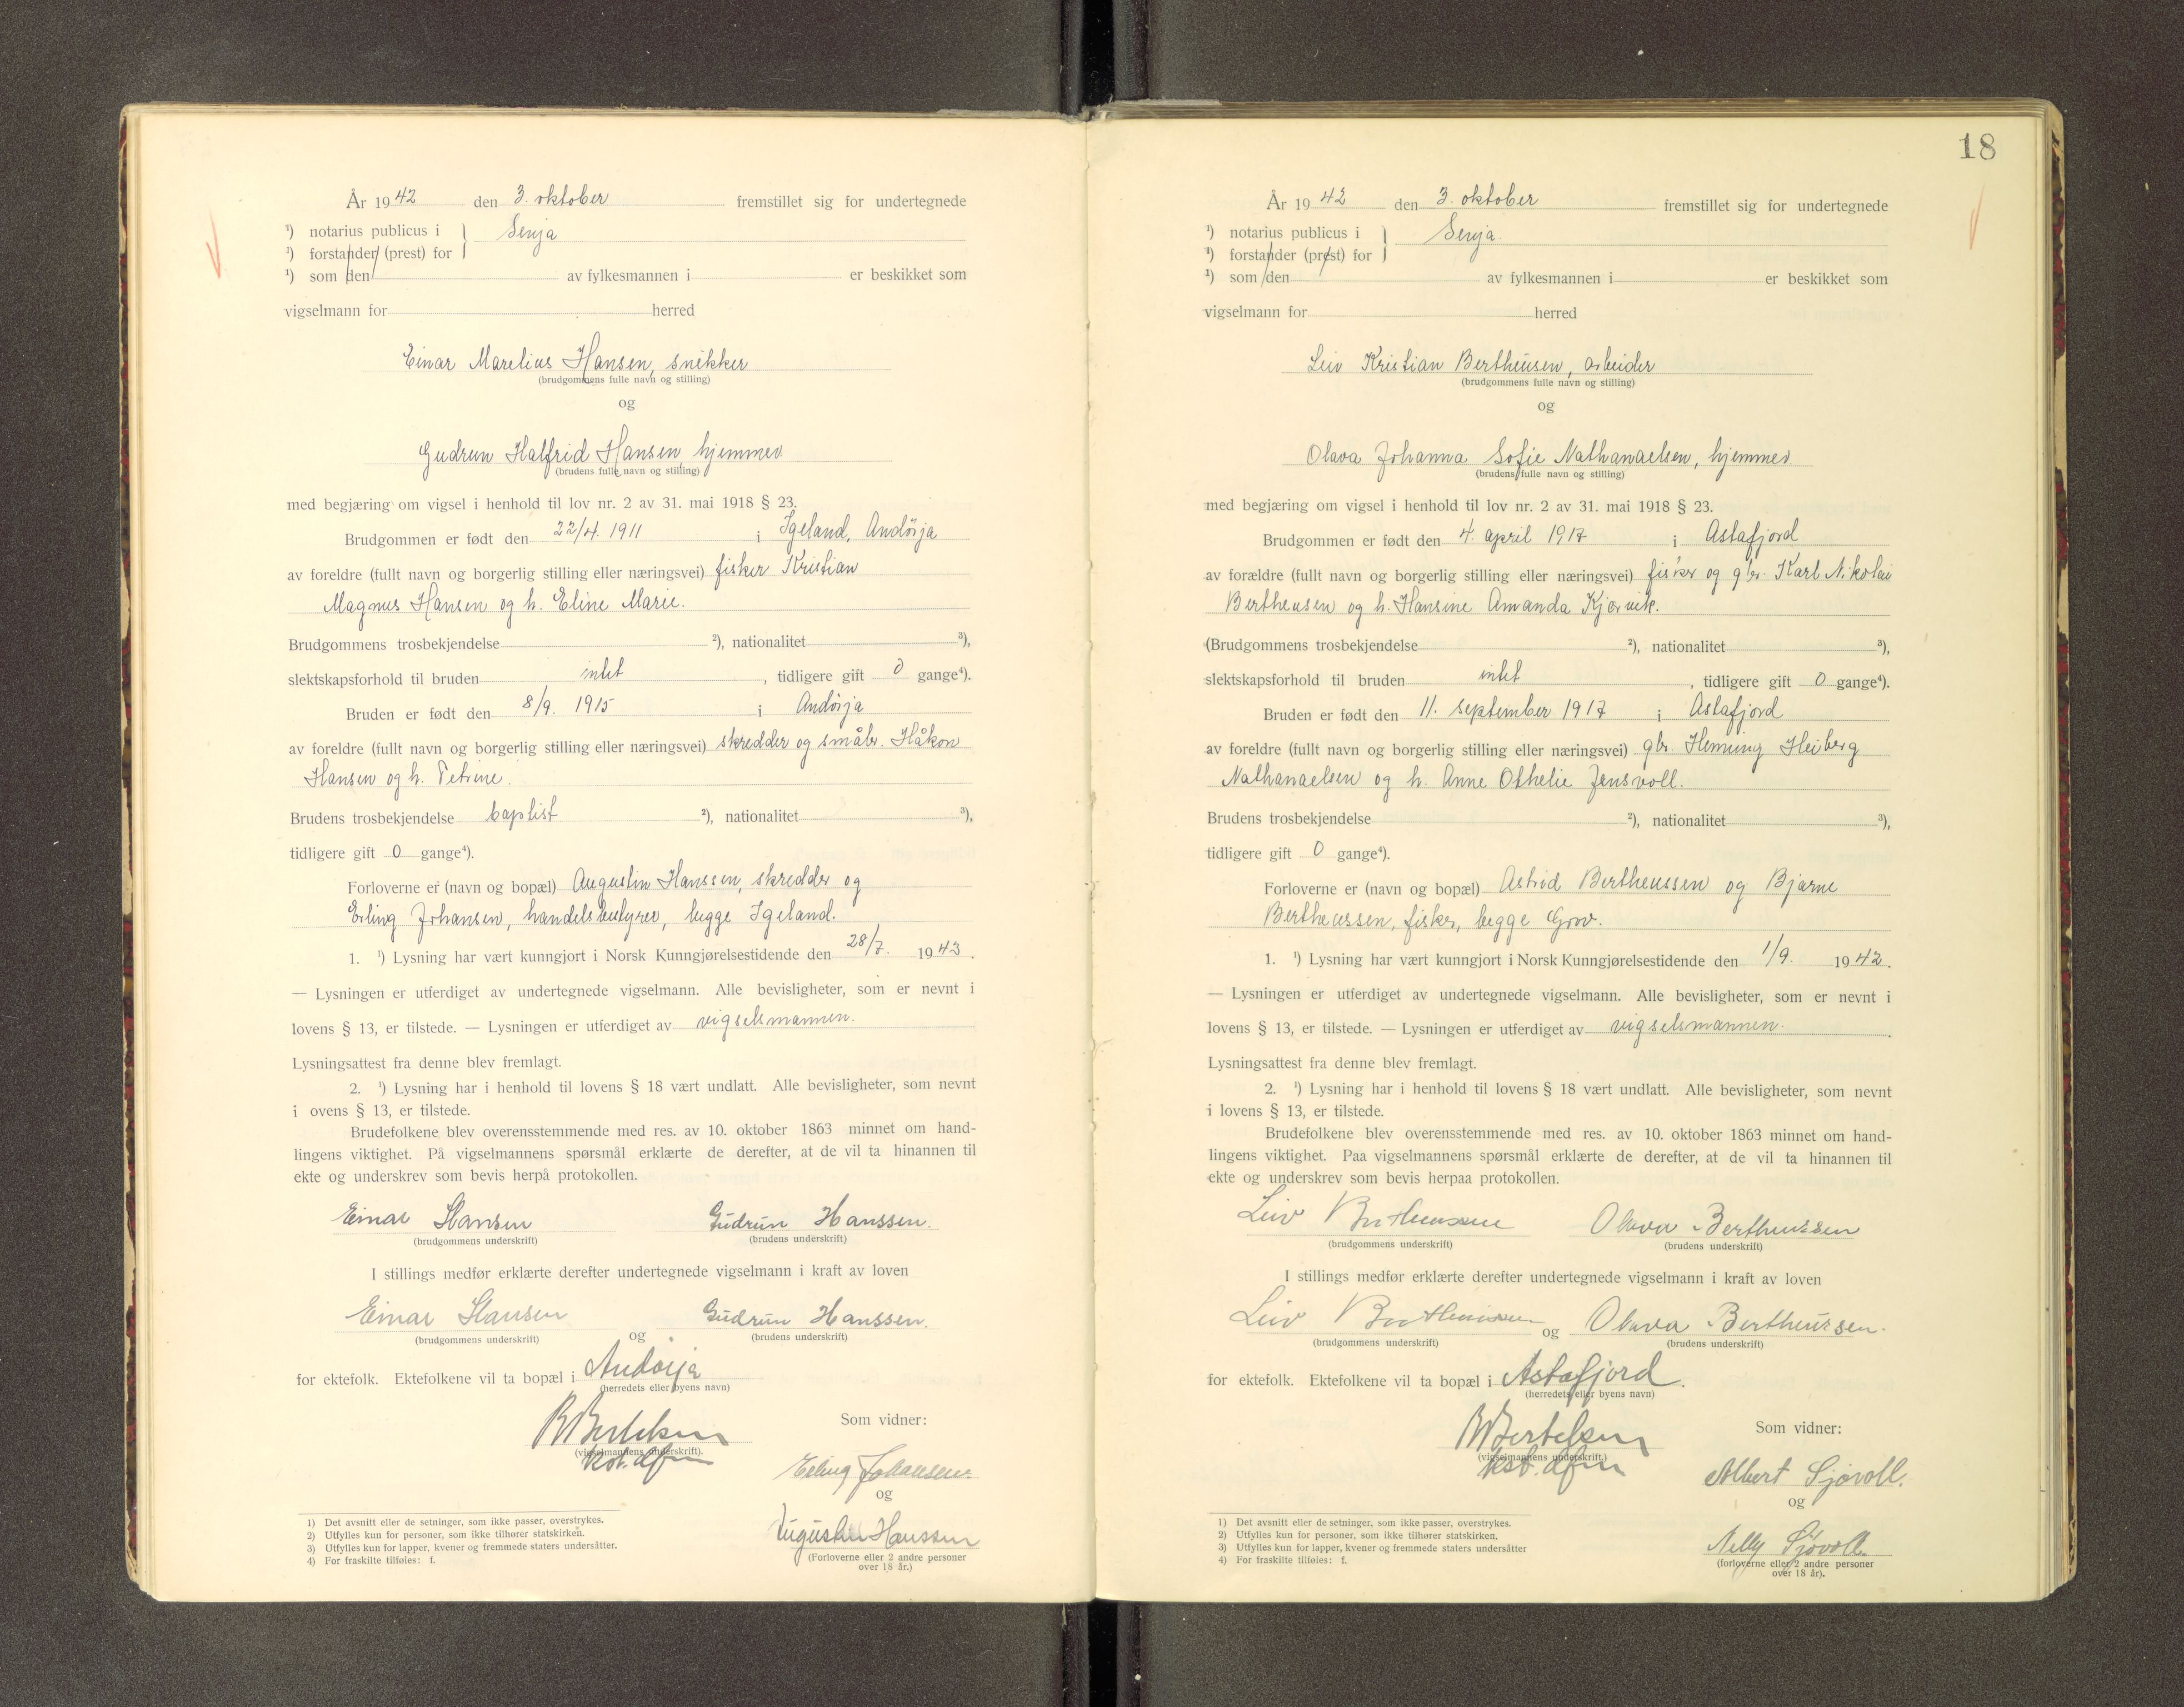 År 1942 den 3. oktober fremstillet sig for undertegnede
¹) notarius publicus i } Senja
¹) forstander (prest) for
¹) som den av fylkesmannen i er beskikket som
vigselmann for herred
Einar Marelius Hansen, snekker
(brudgommens fulle navn og stilling)
og
Gudrun Halfrid Hansen hjemmev.
(brudens fulle navn og stilling)
med begjæring om vigsel i henhold til lov nr. 2 av 31. mai 1918 § 23.
Brudgommen er født den 22/4. 1911 i Igeland, Andörja
av foreldre (fullt navn og borgerlig stilling eller næringsvei) fisker Kristian
Magnus Hansen og h. Eline Marie.
Brudgommens trosbekjendelse ²), nationalitet ³),
slektskapsforhold til bruden intet, tidligere gift 0 gange⁴).
Bruden er født den 8/9. 1915 i Andörja
av foreldre (fullt navn og borgerlig stilling eller næringsvei) skredder og småbr. Håkon
Hansen og h. Petrine.
Brudens trosbekjendelse baptist ²), nationalitet ³),
tidligere gift 0 gange⁴).
Forloverne er (navn og bopæl) Augustin Hanssen, skredder og
Erling Johansen, handelsbestyrer, begge Igeland.
1. ¹) Lysning har vært kunngjort i Norsk Kunngjørelsestidende den 28/7. 1943.
— Lysningen er utferdiget av undertegnede vigselmann. Alle bevisligheter, som er nevnt i
lovens § 13, er tilstede. — Lysningen er utferdiget av vigselsmannen.
Lysningsattest fra denne blev fremlagt.
2. ¹) Lysning har i henhold til lovens § 18 vært undlatt. Alle bevisligheter, som nevnt
i ovens § 13, er tilstede.
Brudefolkene blev overensstemmende med res. av 10. oktober 1863 minnet om hand-
lingens viktighet. På vigselmannens spørsmål erklærte de derefter, at de vil ta hinannen til
ekte og underskrev som bevis herpå protokollen.
Einar Hansen Gudrun Hanssen.
(brudgommens underskrift) (brudens underskrift)
I stillings medfør erklærte derefter undertegnede vigselmann i kraft av loven
Einar Hansen og Gudrun Hanssen.
(brudgommens underskrift) (brudens underskrift)
for ektefolk. Ektefolkene vil ta bopæl i Andörja
(herredets eller byens navn)
Som vidner:
B Bertelsen
(vigselmannens underskrift).
kst. dfm
Erling Johansen.
og
Augustin Hanssen
(Forloverne eller 2 andre personer
over 18 år.)
1) Det avsnitt eller de setninger, som ikke passer, overstrykes.
2) Utfylles kun for personer, som ikke tilhører statskirken.
3) Utfylles kun for lapper, kvener og fremmede staters undersåtter.
4) For fraskilte tilføies: f.
18
År 1942 den 3. oktober fremstillet sig for undertegnede
¹) notarius publicus i } Senja.
¹) forstander (prest) for
¹) som den av fylkesmannen i er beskikket som
vigselmann for herred
Leiv Kristian Bertheusen, arbeider
(brudgommens fulle navn og stilling)
og
Olava Johanna Sofie Nathanaelsen, hjemmev.
(brudens fulle navn og stilling)
med begjæring om vigsel i henhold til lov nr. 2 av 31. mai 1918 § 23.
Brudgommen er født den 4. april 1917 i Astafjord
av forældre (fullt navn og borgerlig stilling eller næringsvei) fisker og gbr. Karl Nikolai
Bertheusen og h. Hansine Amanda Kjørvik.
(Brudgommens trosbekjendelse ²), nationalitet ³),
slektskapsforhold til bruden intet, tidligere gift 0 gange⁴).
Bruden er født den 11. september 1917 i Astafjord
av foreldre (fullt navn og borgerlig stilling eller næringsvei) gbr. Heming Heiberg
Nathanaelsen og h. Anne Othelie Jensvoll.
Brudens trosbekjendelse ²), nationalitet ³),
tidligere gift 0 gange⁴).
Forloverne er (navn og bopæl) Astrid Bertheussen og Bjarne
Bertheussen, fisker, begge Grov.
1. ¹) Lysning har vært kunngjort i Norsk Kunngjørelsestidende den 1/9. 1942.
— Lysningen er utferdiget av undertegnede vigselmann. Alle bevisligheter, som er nevnt i
lovens § 13, er tilstede. — Lysningen er utferdiget av vigselsmannen.
Lysningsattest fra denne blev fremlagt.
2. ¹) Lysning har i henhold til lovens § 18 vært undlatt. Alle bevisligheter, som nevnt
i lovens § 13, er tilstede.
Brudefolkene blev overensstemmende med res. av 10. oktober 1863 minnet om hand-
lingens viktighet. Paa vigselmannens spørsmål erklærte de derefter, at de vil ta hinannen til
ekte og underskrev som bevis herpaa protokollen.
Leiv Bertheussen Olava Bertheussen
(brudgommens underskrift) (brudens underskrift)
I stillings medfør erklærte derefter undertegnede vigselmann i kraft av loven
Leiv Bertheussen og Olava Bertheussen.
(brudgommens underskrift) (brudens underskrift)
for ektefolk. Ektefolkene vil ta bopæl i Astafjord.
(herredets eller byens navn)
Som vidner:
B Bertelsen
(vigselmannens underskrift.)
kst. dfm
Albert Sjøvoll.
og
Nelly Sjøvoll.
(forloverne eller 2 andre personer
over 18 år).
1) Det avsnitt eller de setninger, som ikke passer, overstrykes.
2) Utfylles kun for personer, som ikke tilhører statskirken.
3) Utfylles kun for lapper, kvener og fremmede staters undersåtter
4) For fraskilte tilføies: f.